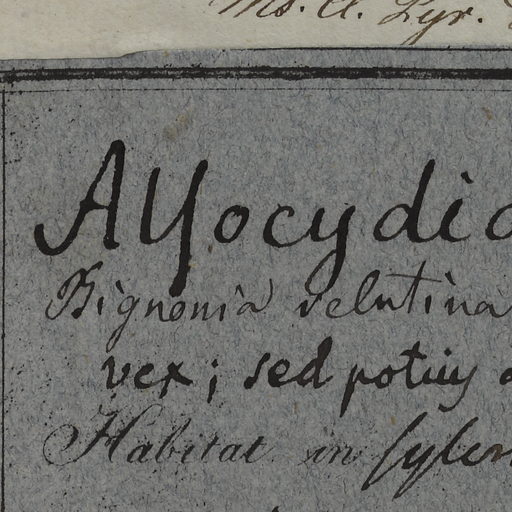 Ms. Cl. Lyr.
Allocydia
Bignonia velutina
vex; sed potius
Habitat in sylv